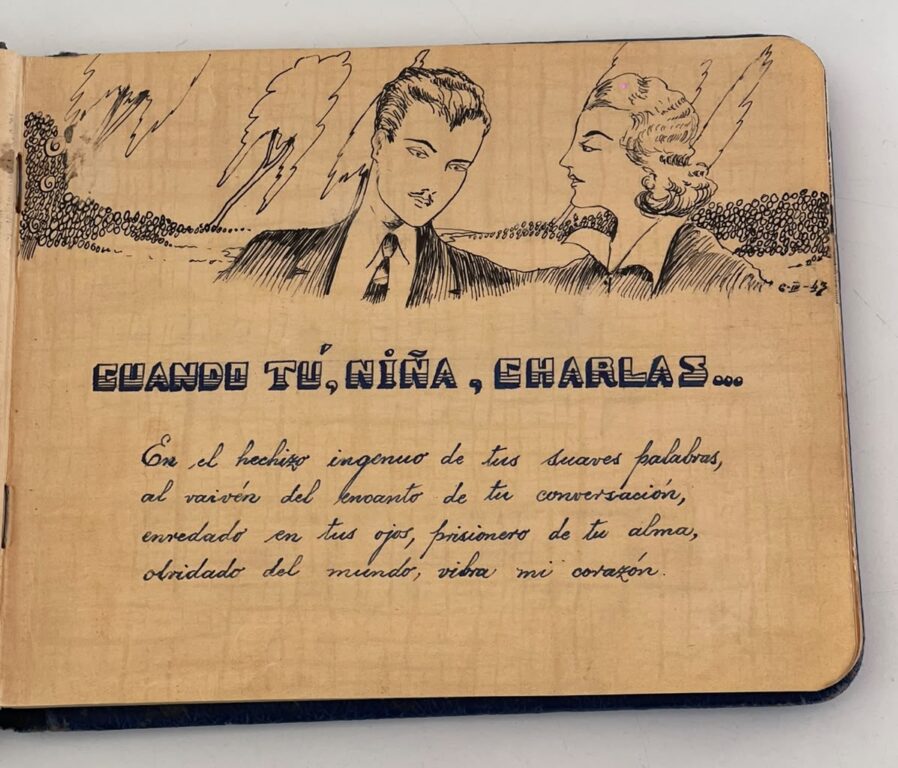 6-III-47
CUANDO TÚ, NIÑA, CHARLAS...
En el hechizo ingenuo de tus suaves palabras,
al vaivén del encanto de tu conversación,
enredado en tus ojos, prisionero de tu alma,
olvidado del mundo, vibra mi corazón.